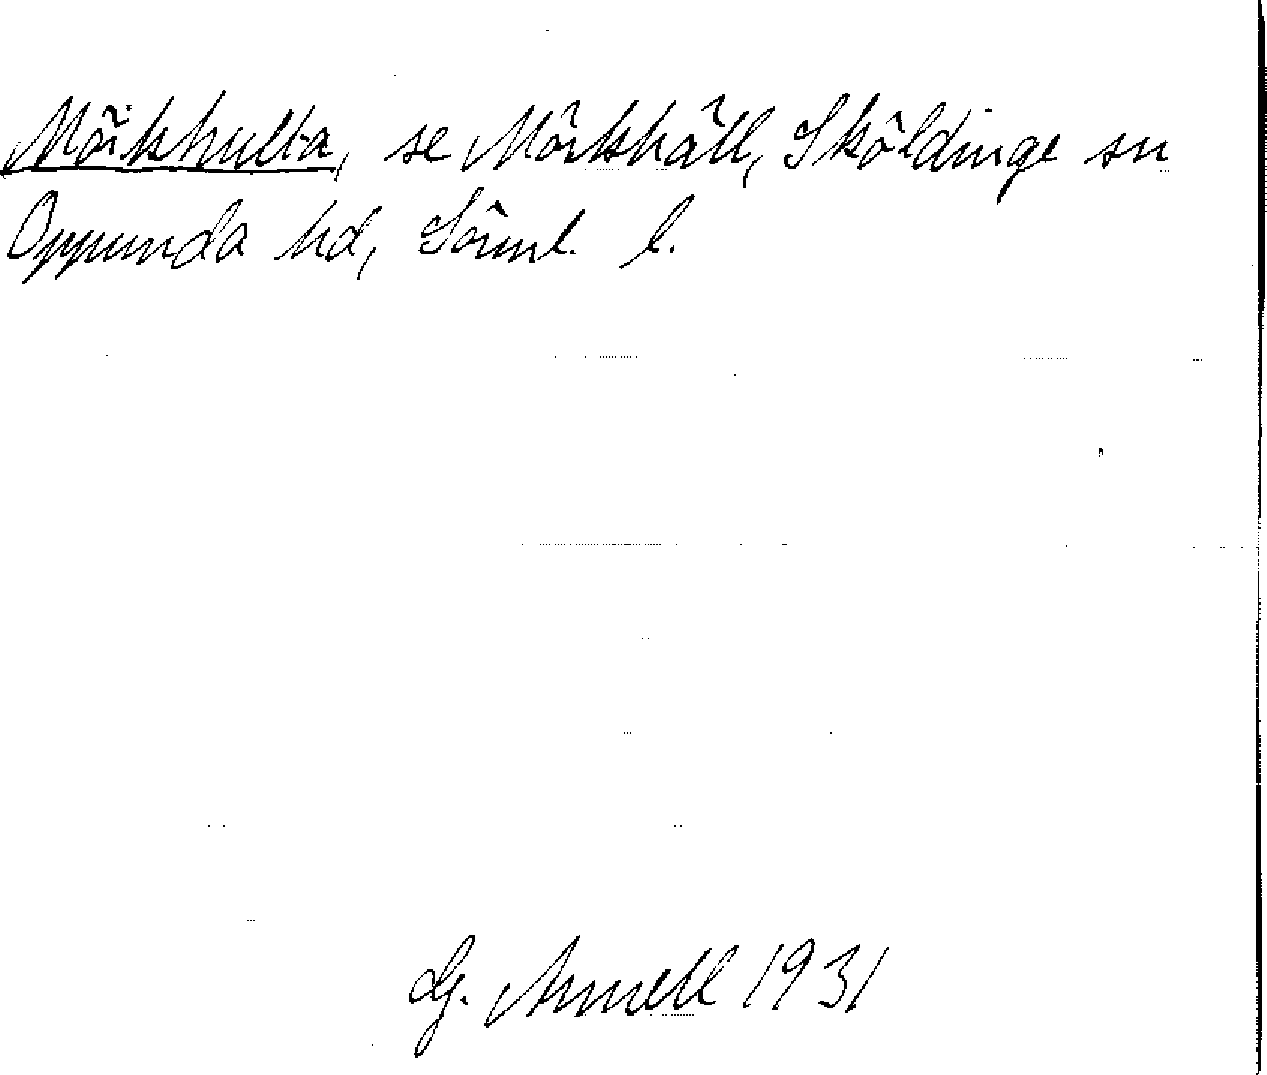 Mörkhulta, se Mörkhäll, Sköldinge sn
Oppunda hd, Söml. l.
G. Arnell 1931